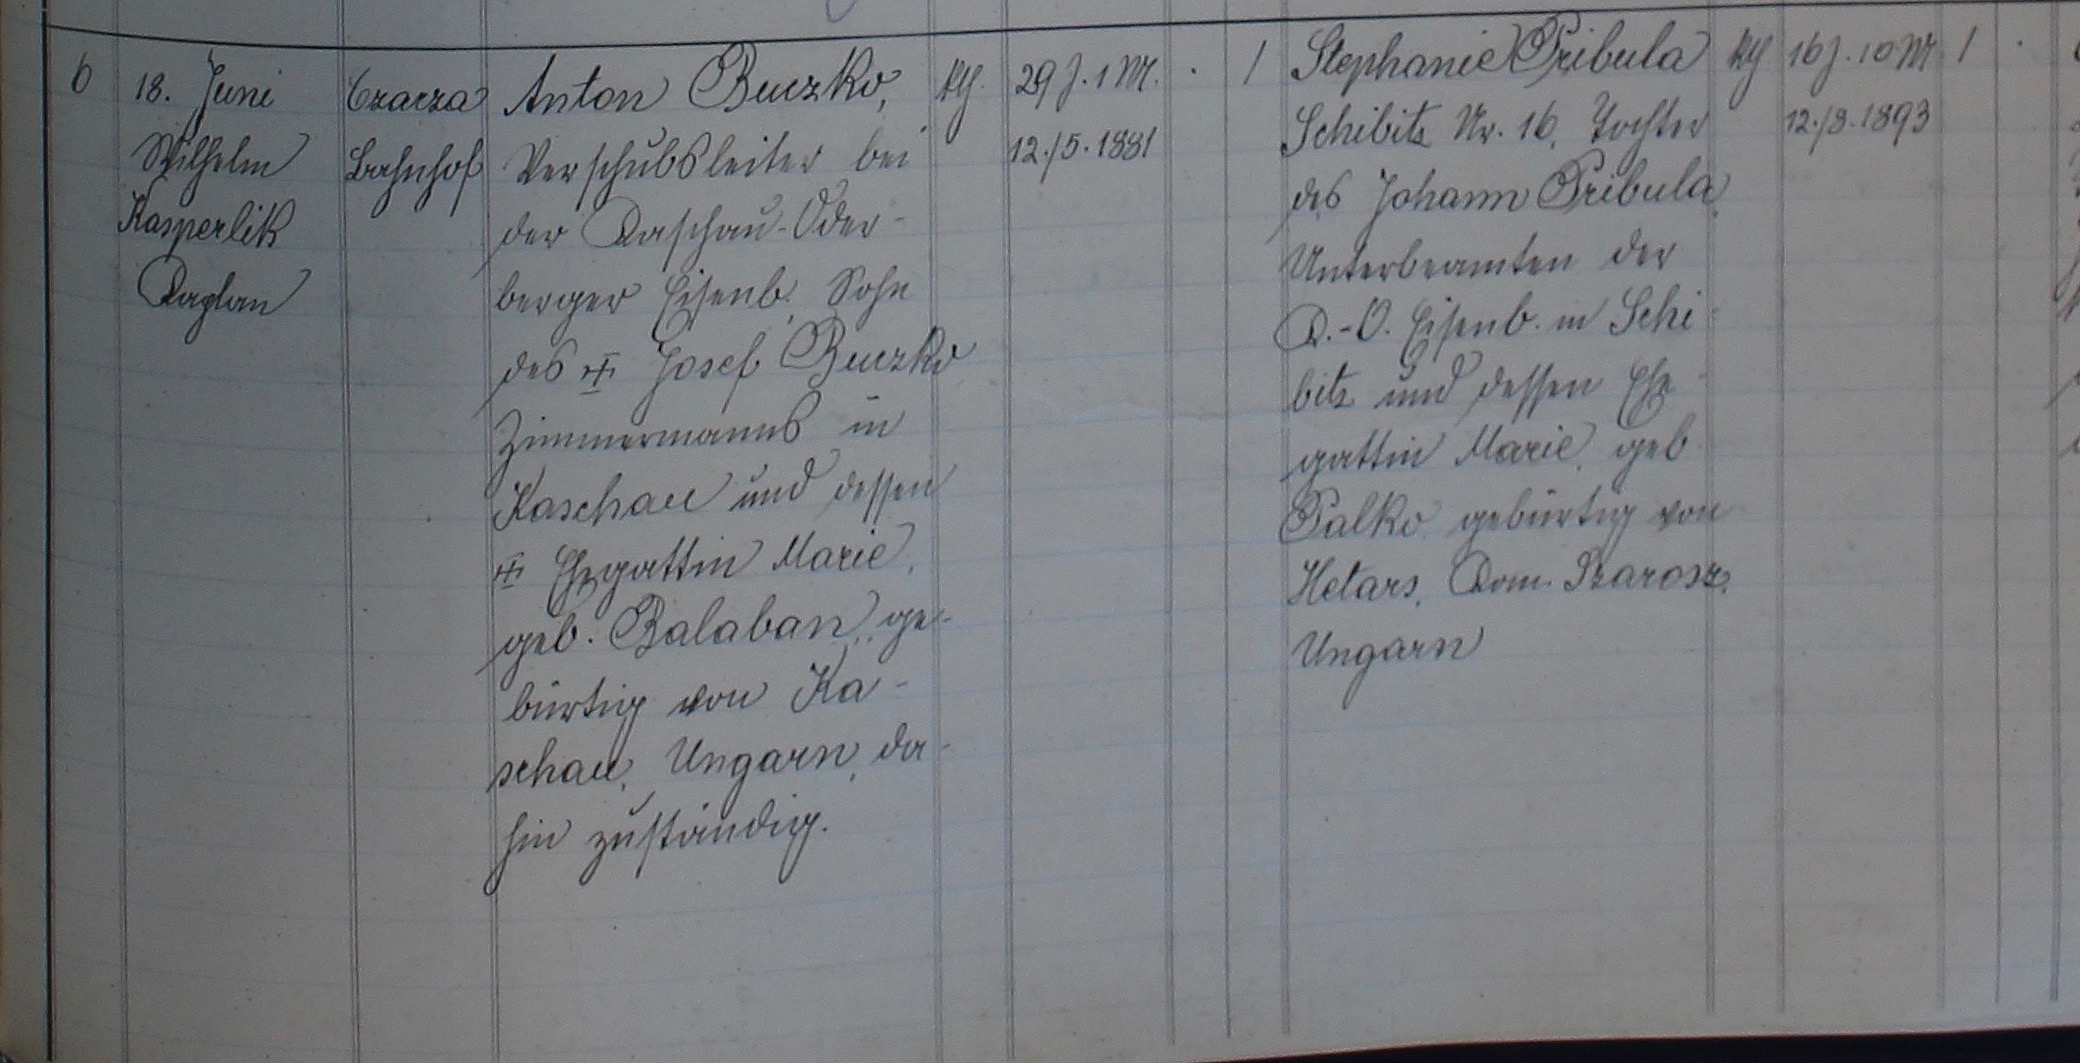 6
18. Juni
Wilhelm
Kasperlik
Kaplan
Czacza
Bahnhof
Anton Buczko,
Verschubsleiter bei
der Kaschau-Oder-
berger Eisenb. Sohn
des Josef Buczko
Zimmermanns in
Kaschau und dessen
Ehegattin Marie,
geb. Balaban, ge-
bürtig von Ka-
schau, Ungarn, da-
hin zuständig.
kth.
29 J. 1 M.
12./5. 1881
/
Stephanie Pribula
Schibitz Nr. 16, Tochter
des Johann Pribula,
Unterbeamten der
K.-O. Eisenb. in Schi-
bitz und dessen Ehe-
gattin Marie, geb.
Palko, gebürtig von
Hetars, Kom. Szarosz,
Ungarn
kth
16 J. 10 M.
12./8. 1893
/